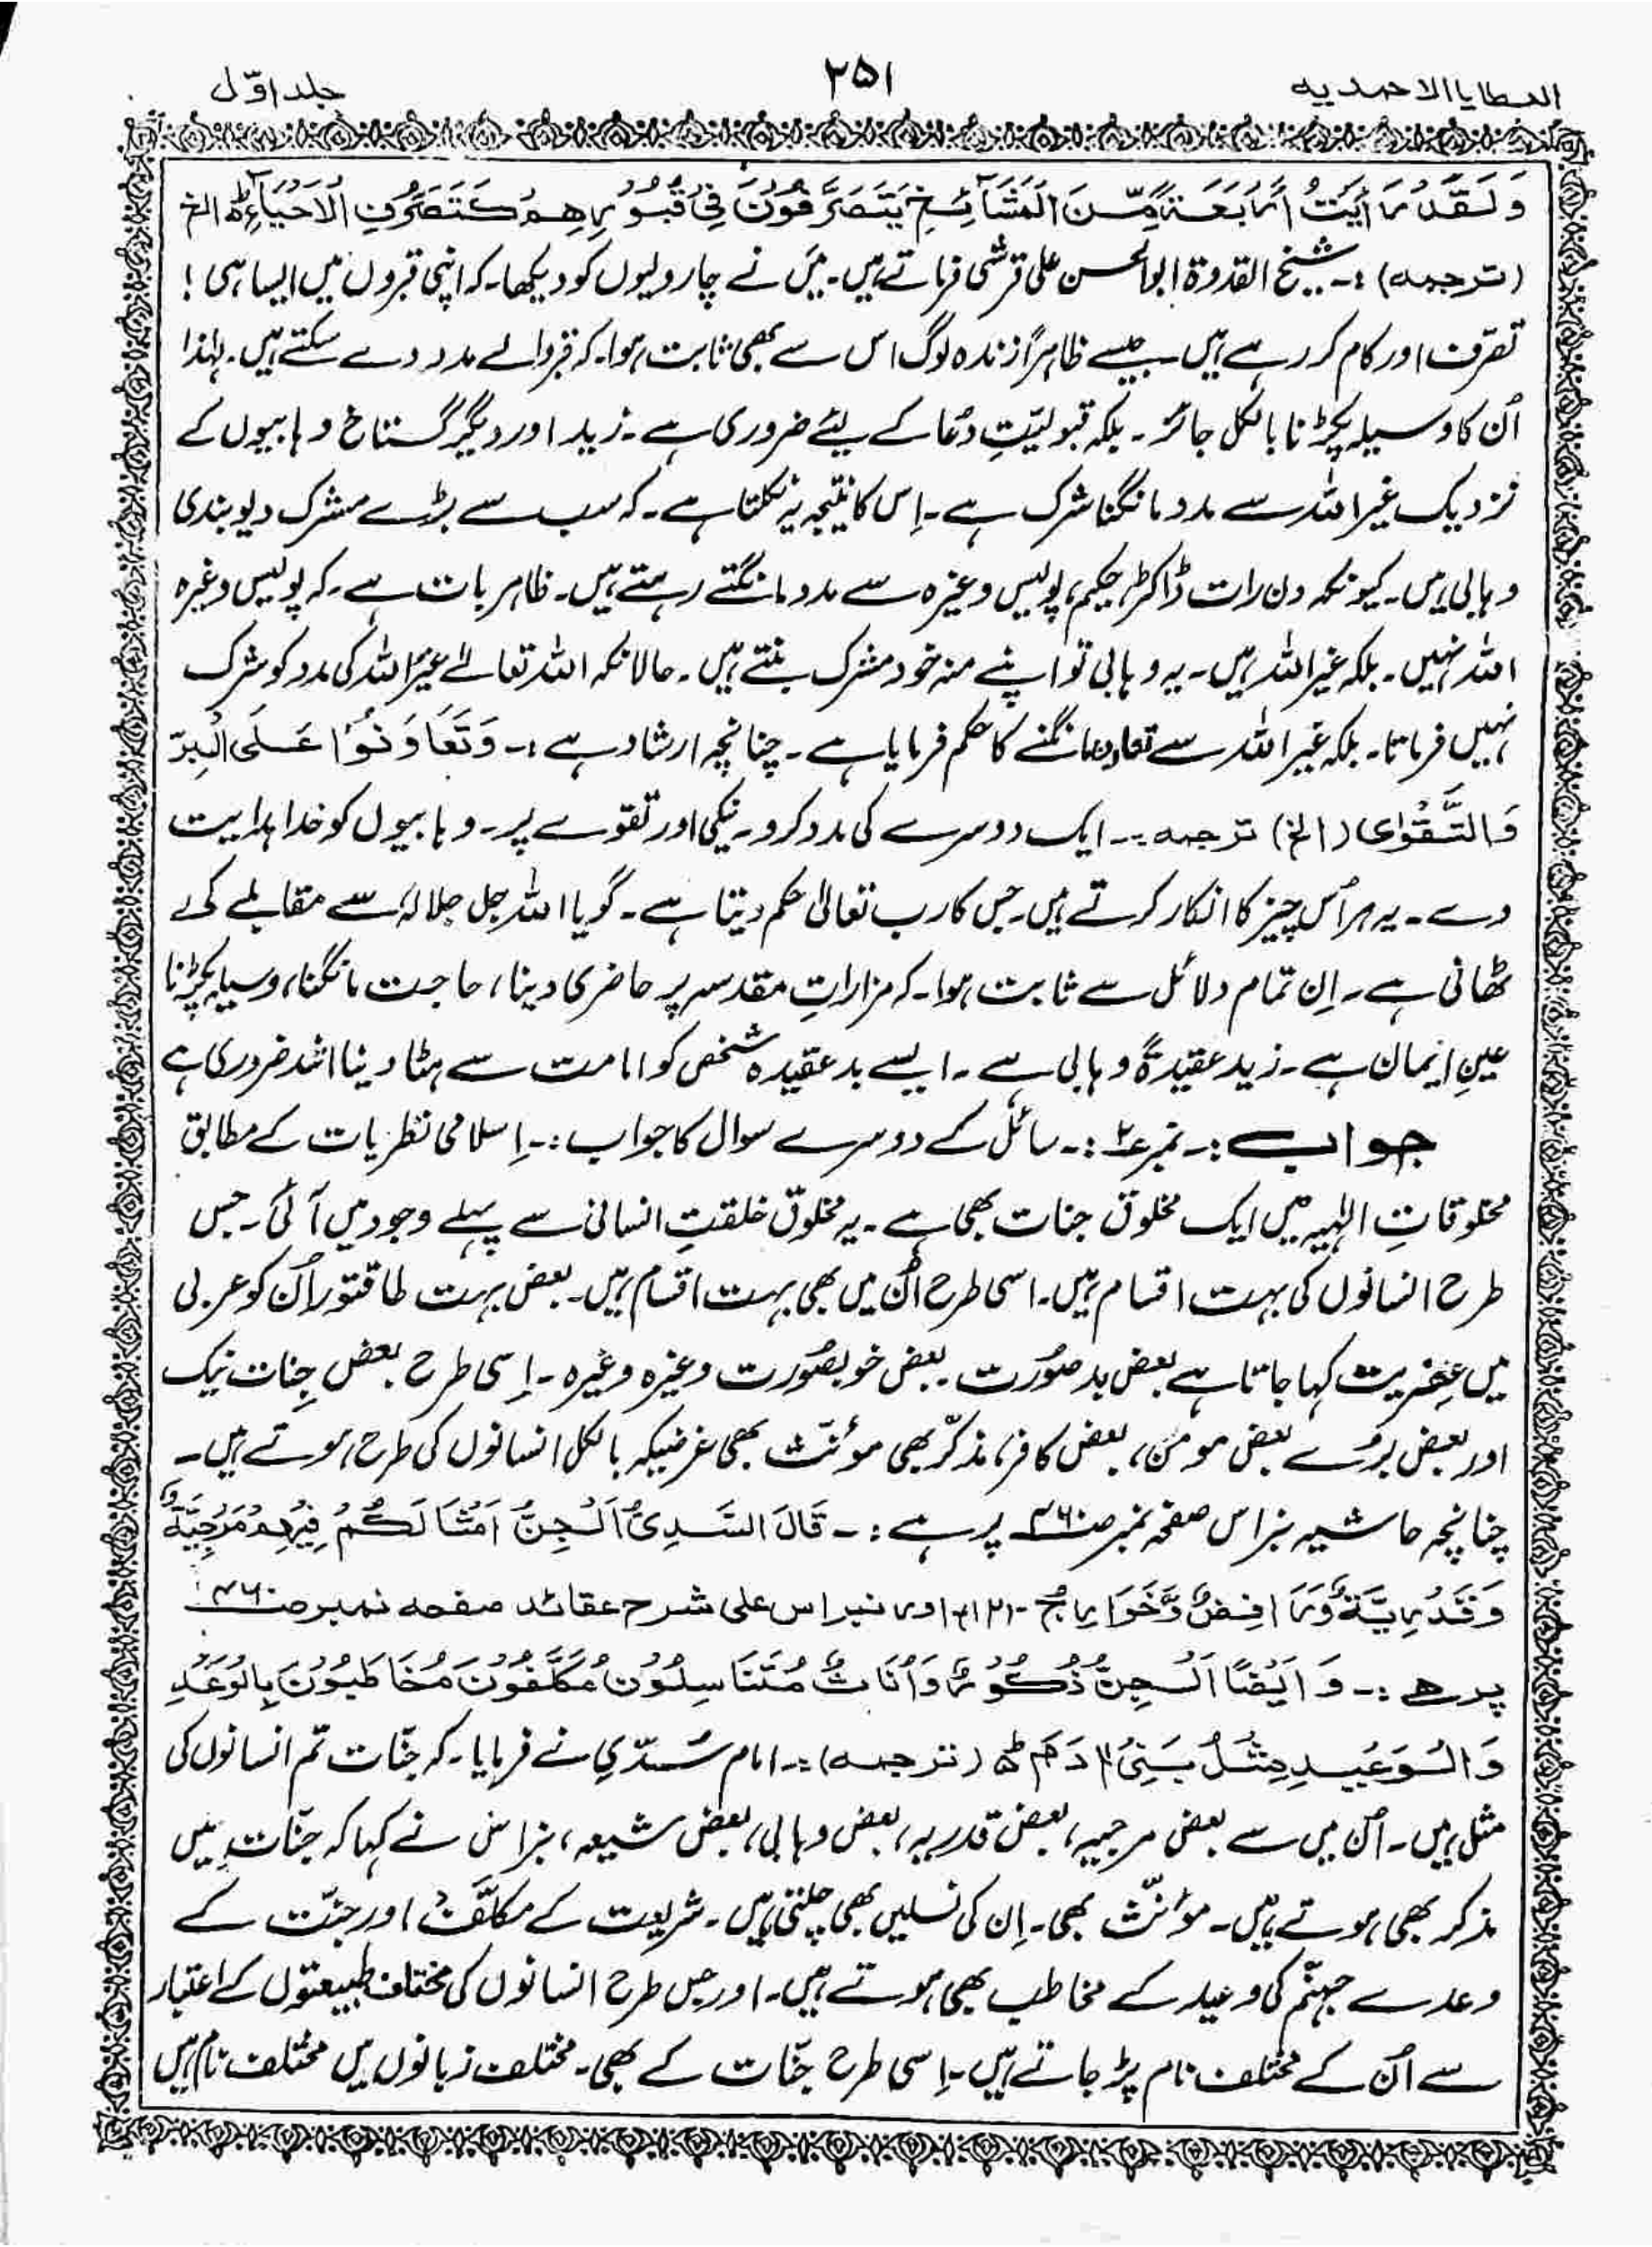 العطایا الاحمدیہ ۲۵۱ جلد اوّل
وَلَقَدْ رَأَیْتُ اَرْبَعَۃً مِّنَ الْمَشَآئِخِ یَتَصَرَّفُوْنَ فِیْ قُبُوْرِھِمْ کَتَصَرُّفِ الْاَحْیَآءِ ط الخ
(ترجمہ) :۔ شیخ القدوۃ ابوالحسن علی قرشی فرماتے ہیں۔ میں نے چار ولیوں کو دیکھا۔ کہ اپنی قبروں میں ایسا ہی !
تصرّف اور کام کر رہے ہیں۔ جیسے ظاہراً زندہ لوگ اس سے بھی ثابت ہوا۔ کہ قبر والے مدد دے سکتے ہیں۔ لہٰذا
اُن کا وسیلہ پکڑنا بالکل جائز۔ بلکہ قبولیّتِ دُعا کے لیئے ضروری ہے۔ زید اور دیگر گستاخ وہابیوں کے
نزدیک غیر اللہ سے مدد مانگنا شرک ہے۔ اِس کا نتیجہ یہ نکلتا ہے۔ کہ سب سے بڑے مشرک دیوبندی
وہابی ہیں۔ کیونکہ دن رات ڈاکٹر، حکیم، پولیس وغیرہ سے مدد مانگتے رہتے ہیں۔ ظاہر بات ہے۔ کہ پولیس وغیرہ
اللہ نہیں۔ بلکہ غیر اللہ ہیں۔ یہ وہابی تو اپنے منہ خود مشرک بنتے ہیں۔ حالانکہ اللہ تعالےٰ غیرُ اللہ کی مدد کو شرک
نہیں فرماتا۔ بلکہ غیر اللہ سے تعاون مانگنے کا حکم فرمایا ہے۔ چنانچہ ارشاد ہے :۔ وَتَعَاوَنُوْا عَلَی الْبِرِّ
وَالتَّقْوٰی (الخ) ترجمہ :۔ ایک دوسرے کی مدد کرو۔ نیکی اور تقوے پر۔ وہابیوں کو خدا ہدایت
دے۔ یہ ہر اُس چیز کا انکار کرتے ہیں۔ جس کا رب تعالیٰ حکم دیتا ہے۔ گویا اللہ جل جلالہٗ سے مقابلے کی
ٹھانی ہے۔ اِن تمام دلائل سے ثابت ہوا۔ کہ مزاراتِ مقدسہ پر حاضری دینا، حاجت مانگنا، وسیلہ پکڑنا
عینِ ایمان ہے۔ زید عقیدۃً وہابی ہے۔ ایسے بد عقیدہ شخص کو امامت سے ہٹا دینا اشد ضروری ہے
جواب :۔ نمبر ۲ :۔ سائل کے دوسرے سوال کا جواب :۔ اِسلامی نظریات کے مطابق
مخلوقاتِ الٰہیہ میں ایک مخلوق جنات بھی ہے۔ یہ مخلوق خلقتِ انسانی سے پہلے وجود میں آئی۔ جس
طرح انسانوں کی بہت اقسام ہیں۔ اسی طرح اُن میں بھی بہت اقسام ہیں۔ بعض بہت طاقتور اُن کو عربی
میں عِفریت کہا جاتا ہے بعض بد صُورت۔ بعض خوبصُورت وغیرہ وغیرہ۔ اِسی طرح بعض جِنات نیک
اور بعض بُرے بعض مومن، بعض کافر، مذکّر بھی موئنّث بھی غرضیکہ بالکل انسانوں کی طرح ہوتے ہیں۔
چنانچہ حاشیہ نبراس صفحہ نمبر صـ۴۶۰ پر ہے :۔ قَالَ السَّدِیُّ اَلْجِنُّ اَمْثَالَکُمْ فِیْھِمْ مَرْجِیَّۃٌ
وَقَدْرِیَّۃٌ وَّرَافِضٌ وَّخَوَارِجُ ۱۲۔ اور نبراس علی شرح عقائد صفحہ نمبر صـ۴۶۰
پر ھے :۔ وَ اَیْضًا اَلْجِنُّ ذُکُوْرٌ وَّاُنَاثٌ مُتَنَاسِلُوْنَ مُکَلَّفُوْنَ مُخَاطَبُوْنَ بِالْوَعْدِ
وَالْوَعِیْدِ مِثْلُ بَنِیْ اٰدَمَ ط (ترجمہ) :۔ امام سُدّی نے فرمایا۔ کہ جنّات تم انسانوں کی
مثل ہیں۔ اُن میں سے بعض مرجیہ، بعض قدریہ، بعض وہابی، بعض شیعہ، نبراس نے کہا کہ جنّات میں
مذکر بھی ہوتے ہیں۔ موٗنّث بھی۔ اِن کی نسلیں بھی چلتی ہیں۔ شریعت کے مکلّف اور جنّت کے
وعدے جہنّم کی وعید کے مخاطب بھی ہوتے ہیں۔ اور جس طرح انسانوں کی مختلف طبیعتوں کے اعتبار
سے اُن کے مختلف نام پڑ جاتے ہیں۔ اِسی طرح جنّات کے بھی۔ مختلف زبانوں میں مختلف نام ہیں